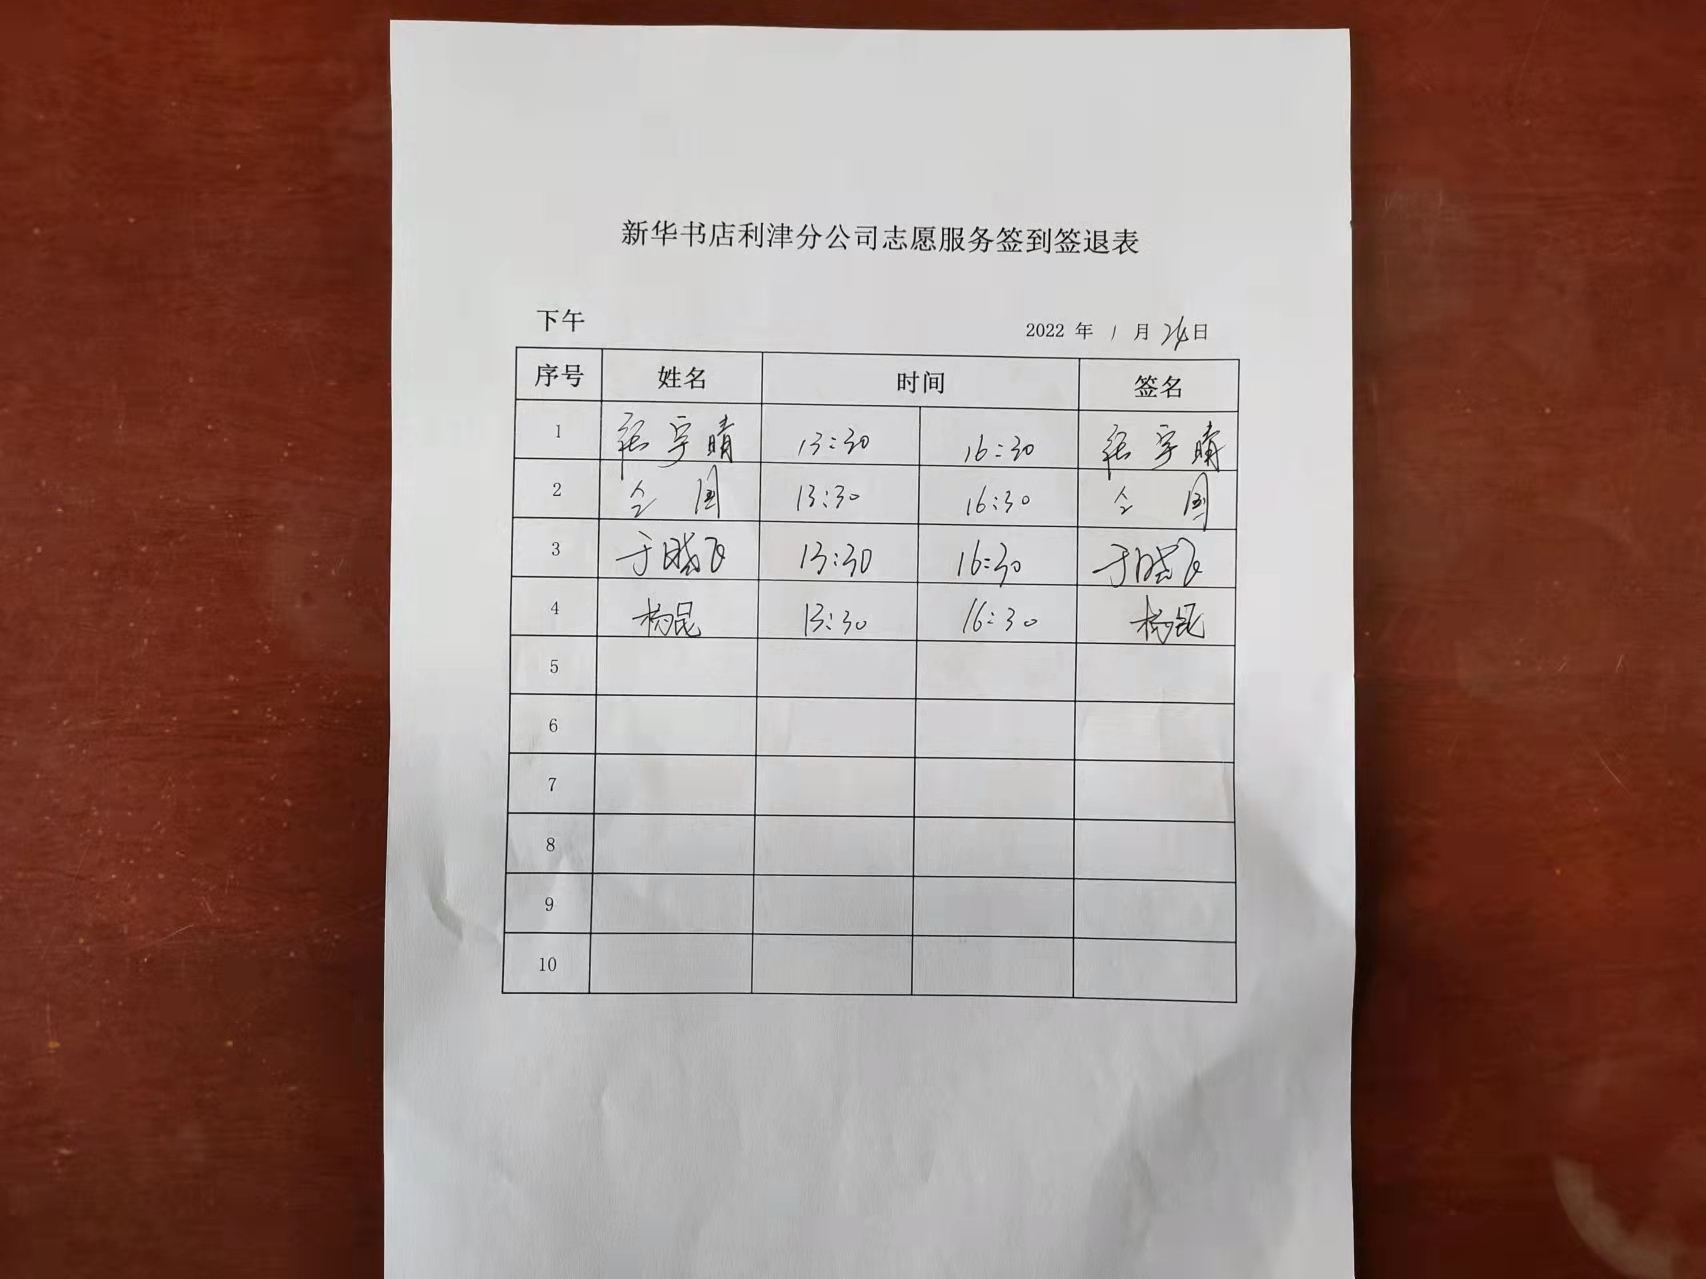 新华书店利津分公司志愿服务签到签退表
下午 2022 年 1 月 24日
序号 姓名 时间 签名
1 张宇晴 13:30 16:30 张宇晴
2 13:30 16:30
3 于晓飞 13:30 16:30 于晓飞
4 杨昆 13:30 16:30 杨昆
5
6
7
8
9
10